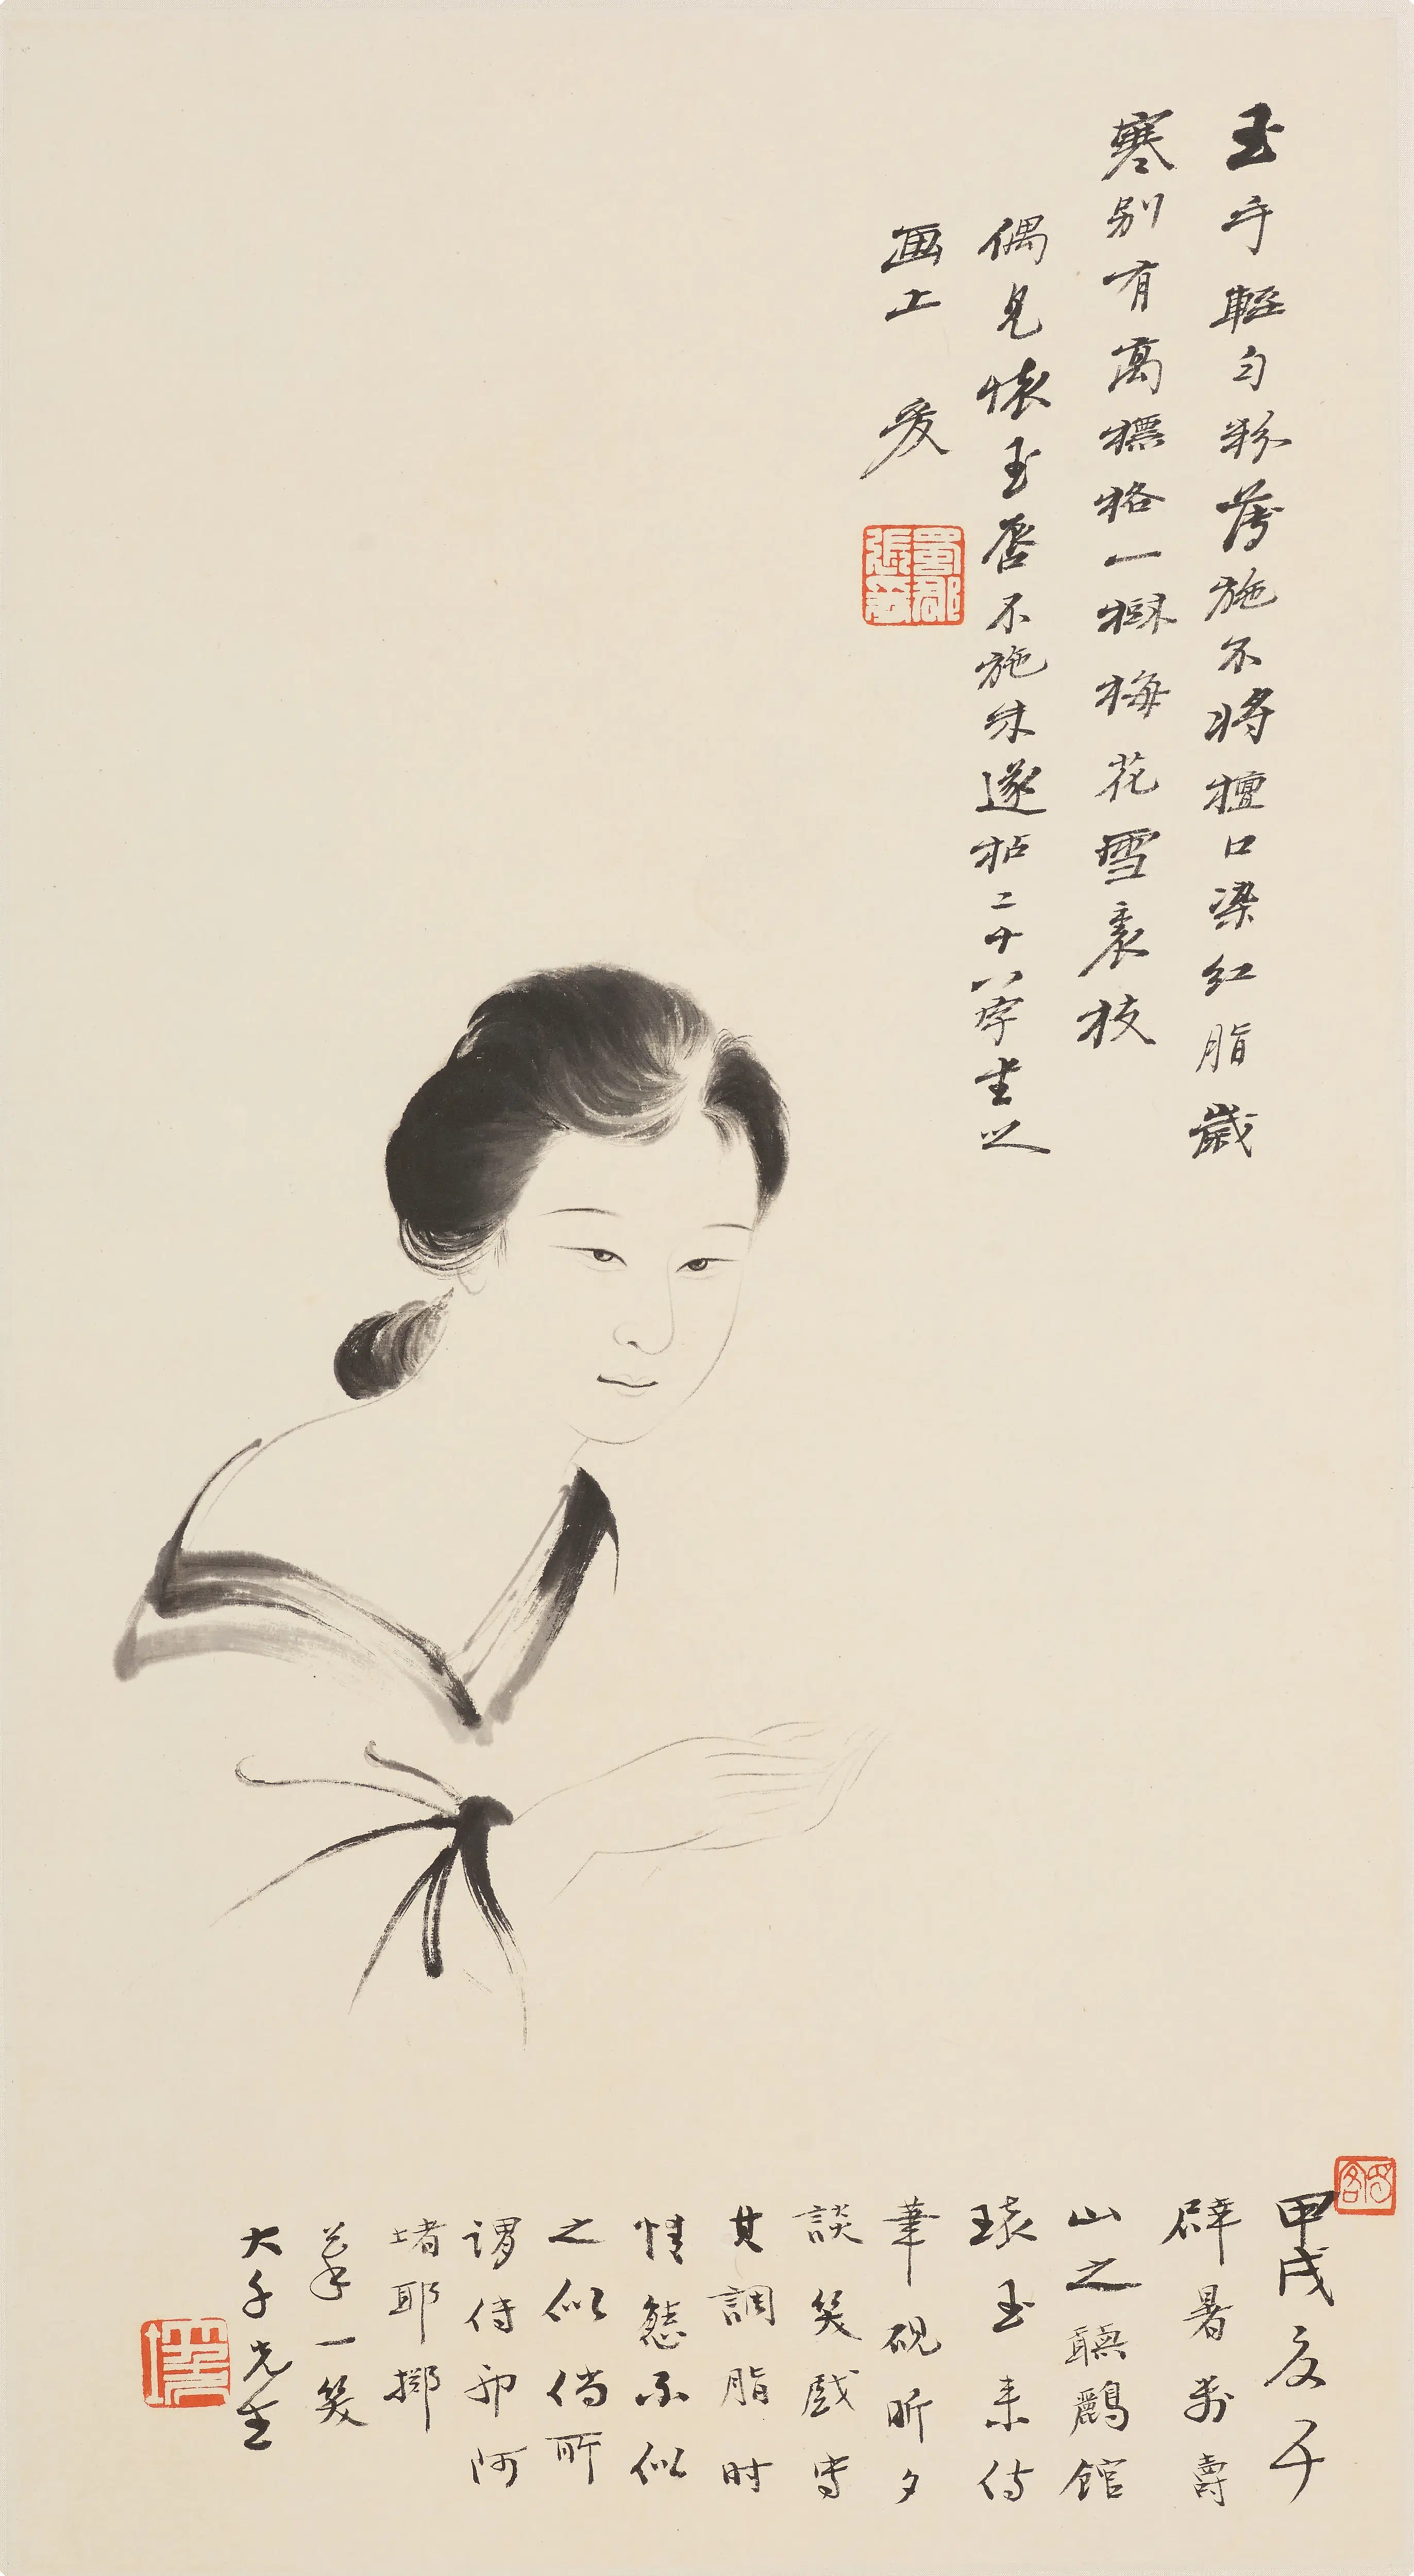 玉手輕勻粉薄施不將檀口染紅脂歲
寒別有高標格一樹梅花雪裹枝
偶見懷玉唇不施朱遂拈二十八字書之
画上 爰
蜀郡張爰
甲戌夏予
辟暑萬壽
山之聽鸝館
懷玉来侍
筆硯昕夕
談笑戲寫
其調脂时
情態不似
之似倘所
謂傳神阿
堵耶擲
筆一笑
大千先生